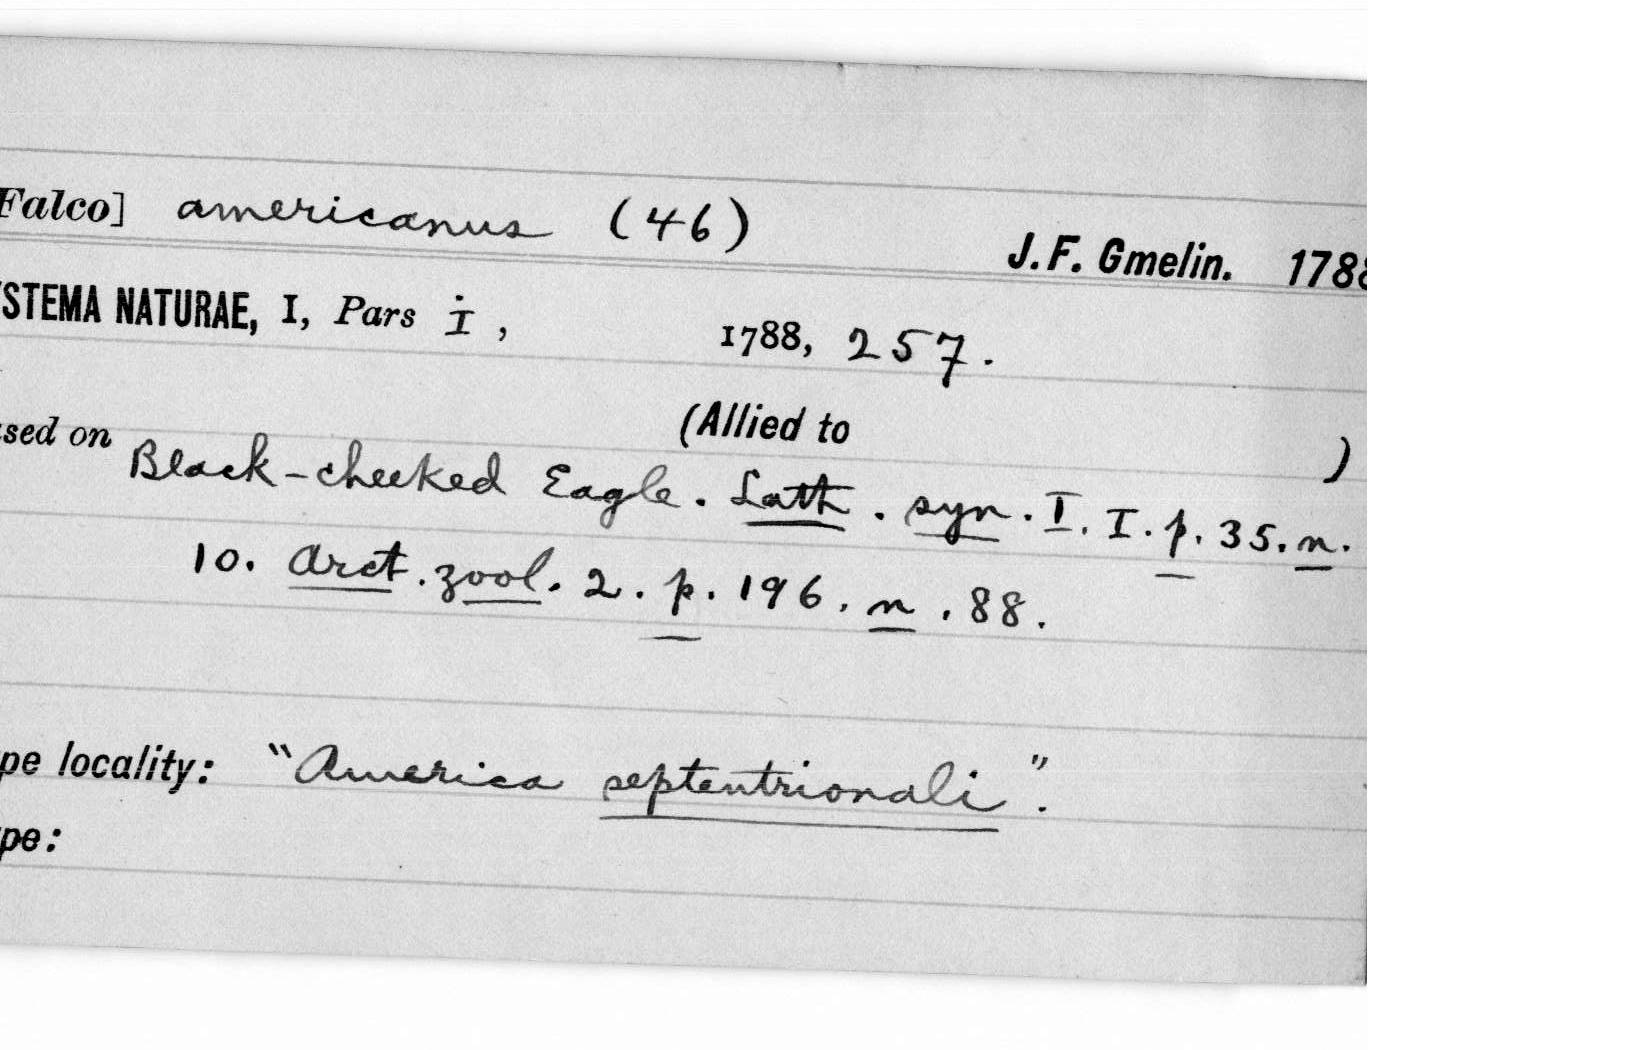 Falco] americanus (46)
J. F. Gmelin. 1788
STEMA NATURAE, I, Pars i, 1788, 257.
(Allied to )
sed on Black-cheeked Eagle. Lath. syn. I. I. p. 35. n.
10. Arct. zool. 2. p. 196. n. 88.
pe locality: "America septentrionali".
pe: